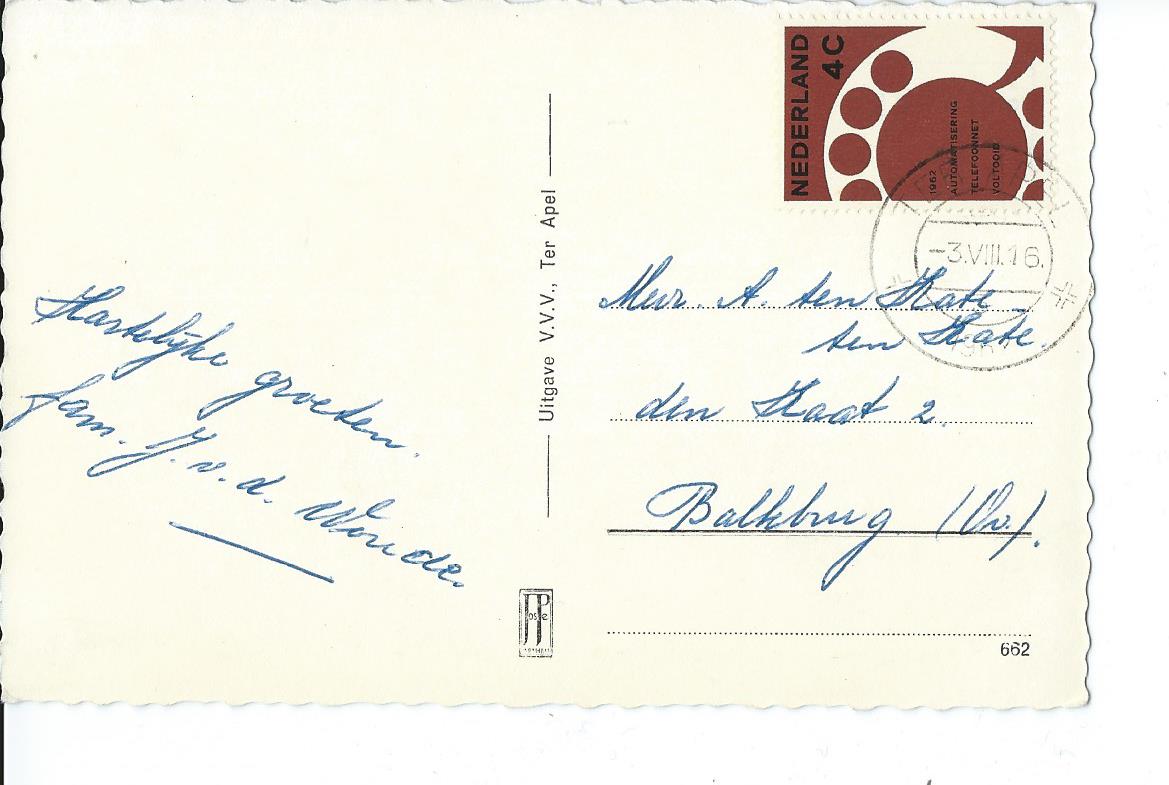 NEDERLAND
4 C
1962
AUTOMATISERING
TELEFOONNET
VOLTOOID
-3.VIII.16.
Hartelijke groeten.
fam. J. v. d. Woude.
Uitgave V.V.V., Ter Apel
Mevr. A. ten Kate
ten Kate.
den Kaat 2.
Balkburg (Ov.).
JP
662